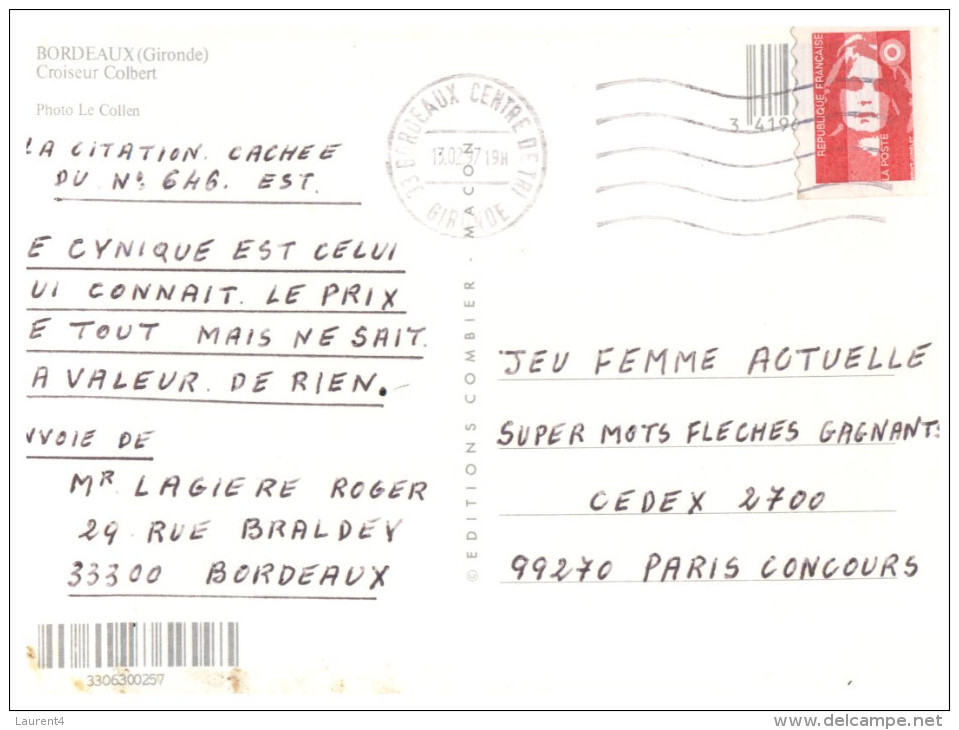 BORDEAUX (Gironde)
Croiseur Colbert
Photo Le Collen
LA CITATION. CACHEE
DU Nº 646. EST.
E CYNIQUE EST CELUI
UI CONNAIT. LE PRIX
E TOUT MAIS NE SAIT.
A VALEUR. DE RIEN.
NVOIE DE
MR. LAGIERE ROGER
29 RUE BRALDEY
33300 BORDEAUX
3306300257
© EDITIONS COMBIER - MACON
33 BORDEAUX CENTRE DE TRI
13.02.97 19H
GIRONDE
3 4190
REPUBLIQUE FRANÇAISE
LA POSTE
JEU FEMME ACTUELLE
SUPER MOTS FLECHES GAGNANTS
CEDEX 2700
99270 PARIS CONCOURS
Laurent4
www.delcampe.net